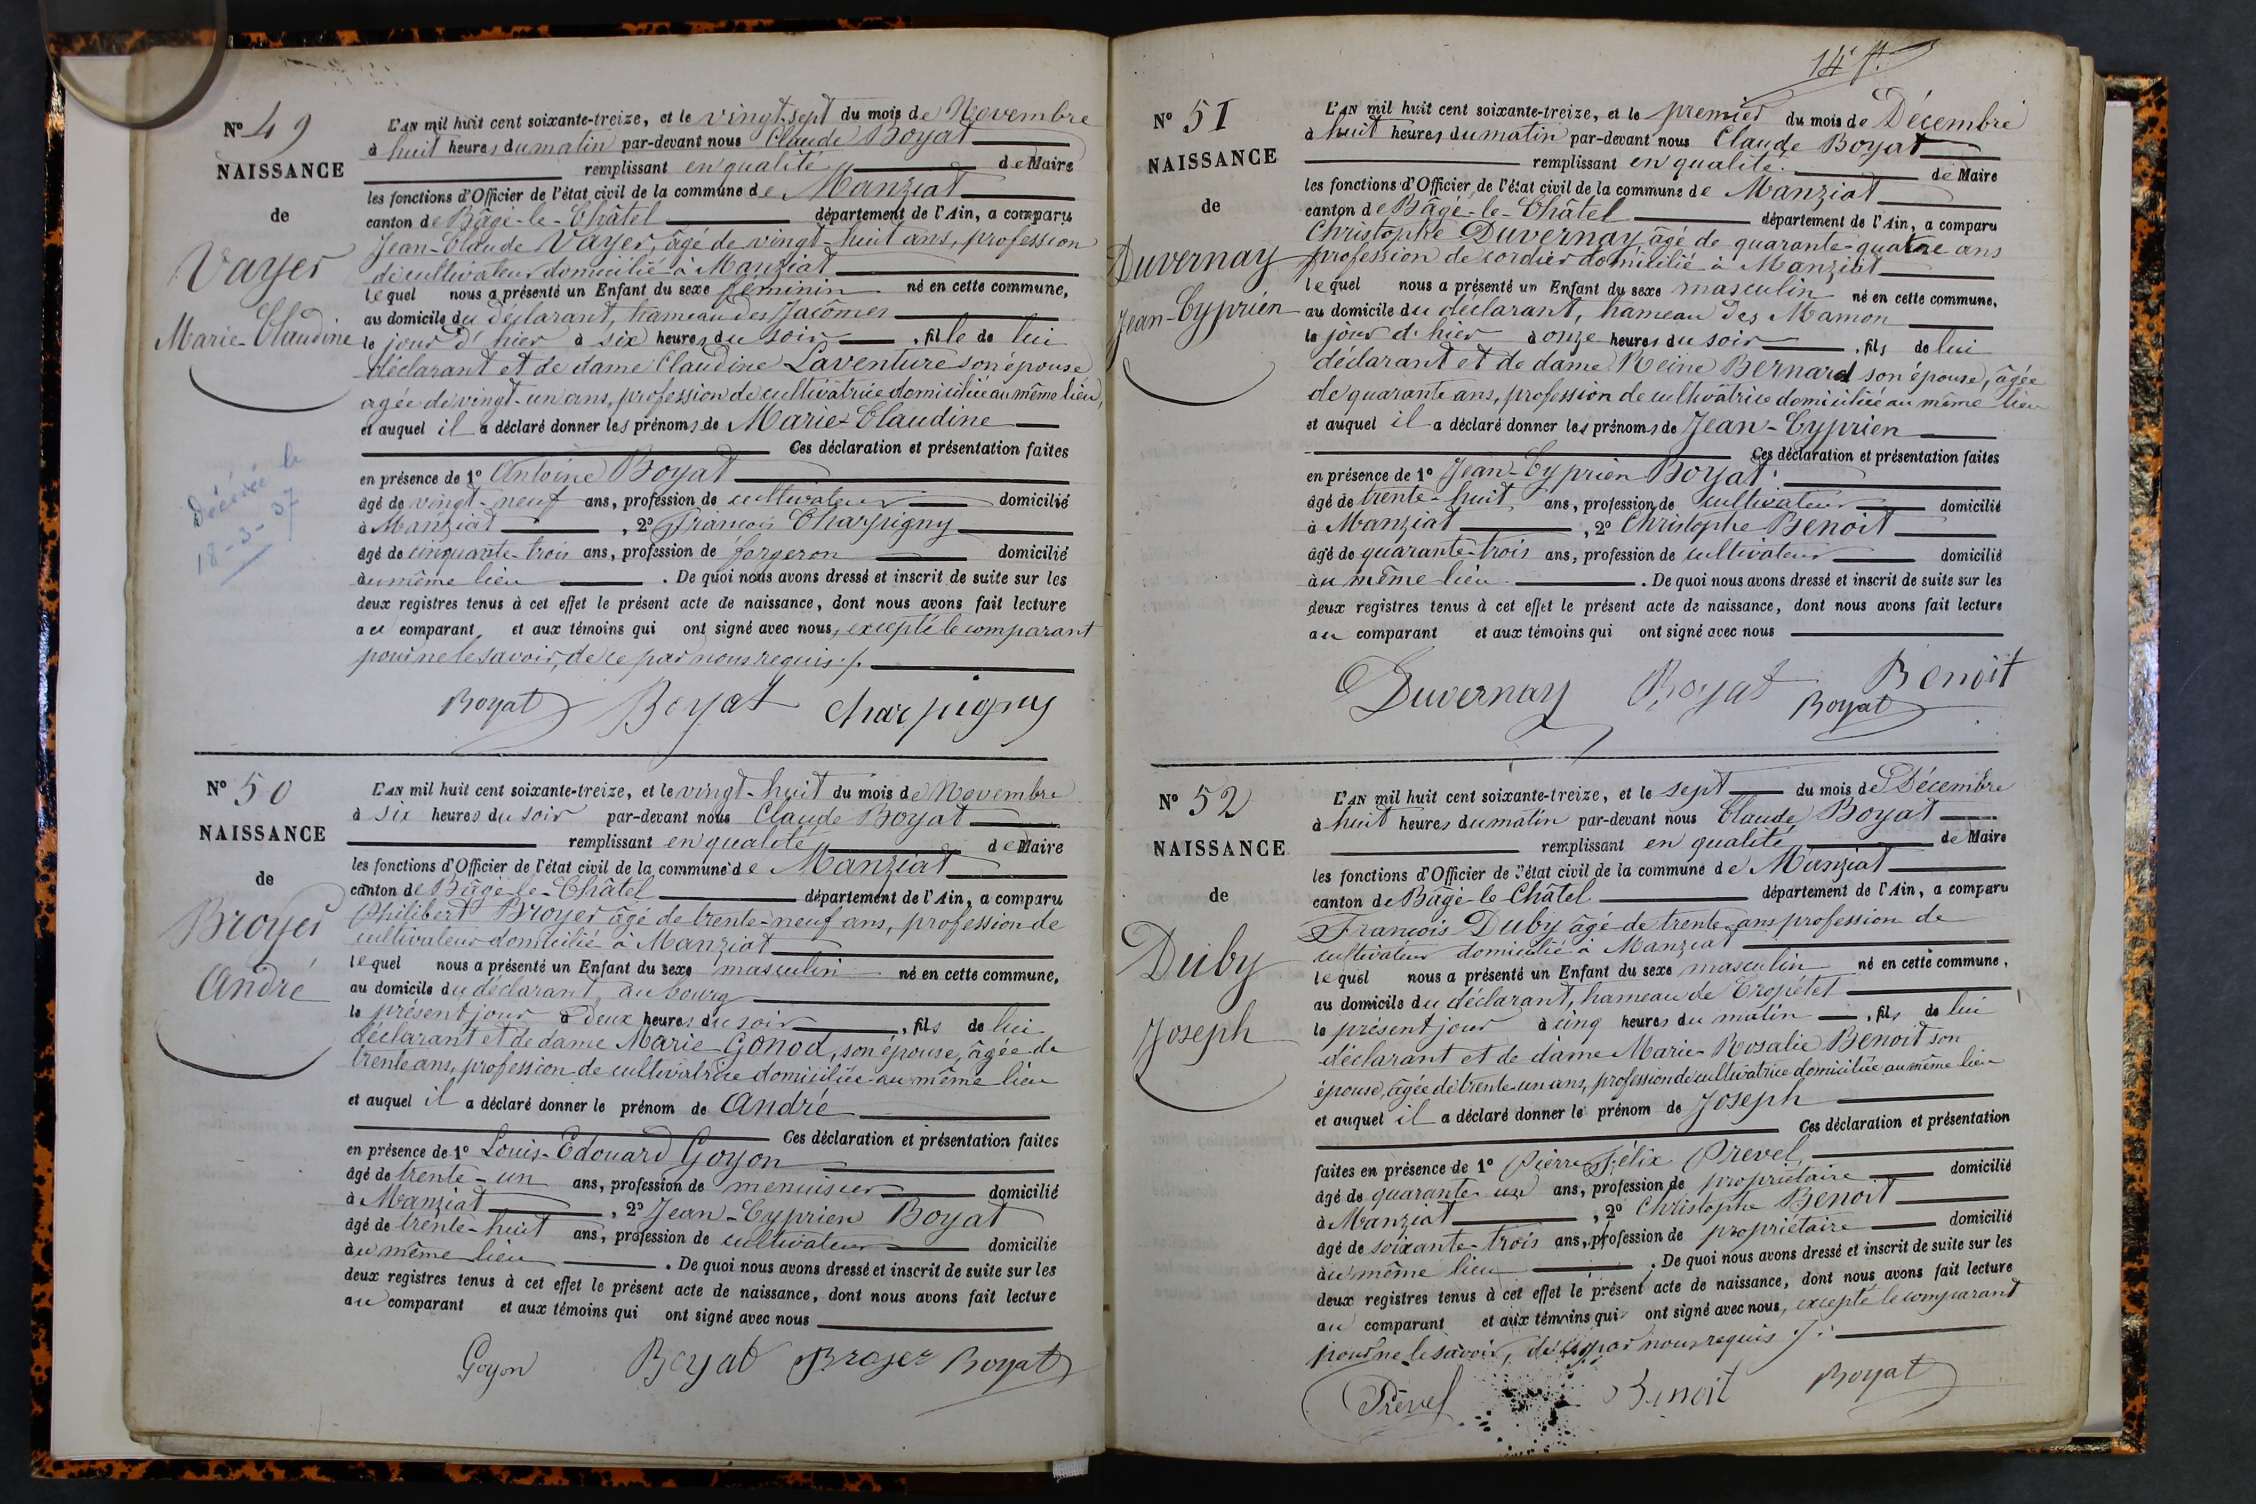 Nº 49
NAISSANCE
de
Vayer
Marie-Claudine
Décédée le
18-3-37
L'AN mil huit cent soixante-treize, et le vingt-sept du mois de Novembre
à huit heures du matin par-devant nous Claude Boyat
remplissant en qualité de Maire
les fonctions d'Officier de l'état civil de la commune de Manziat
canton de Bâgé-le-Châtel département de l'Ain, a comparu
Jean-Claude Vayer, âgé de vingt-huit ans, profession
de cultivateur domicilié à Manziat
lequel nous a présenté un Enfant du sexe féminin né en cette commune,
au domicile du déclarant, hameau des Jacômes
le jour d'hier à six heures du soir, fille de lui
déclarant et de dame Claudine Laventure son épouse
agée de vingt-un ans, profession de cultivatrice domiciliée au même lieu,
et auquel il a déclaré donner les prénoms de Marie-Claudine
Ces déclaration et présentation faites
en présence de 1º Antoine Boyat
âgé de vingt-neuf ans, profession de cultivateur domicilié
à Manziat, 2º François Charpigny
âgé de cinquante-trois ans, profession de forgeron domicilié
au même lieu. De quoi nous avons dressé et inscrit de suite sur les
deux registres tenus à cet effet le présent acte de naissance, dont nous avons fait lecture
au comparant et aux témoins qui ont signé avec nous, excepté le comparant
pour ne le savoir, de ce par nous requis ./.
Boyat Boyat Charpigny
Nº 50
NAISSANCE
de
Broyer
André
L'AN mil huit cent soixante-treize, et le vingt-huit du mois de Novembre
à six heures du soir par-devant nous Claude Boyat
remplissant en qualité de Maire
les fonctions d'Officier de l'état civil de la commune de Manziat
canton de Bâgé-le-Châtel département de l'Ain, a comparu
Philibert Broyer âgé de trente-neuf ans, profession de
cultivateur domicilié à Manziat
lequel nous a présenté un Enfant du sexe masculin né en cette commune,
au domicile du déclarant, au bourg
le présent jour à deux heures du soir, fils de lui
déclarant et de dame Marie Gonod, son épouse, âgée de
trente ans, profession de cultivatrice domiciliée au même lieu
et auquel il a déclaré donner le prénom de André
Ces déclaration et présentation faites
en présence de 1º Louis-Edouard Goyon
âgé de trente-un ans, profession de menuisier domicilié
à Manziat, 2º Jean-Cyprien Boyat
âgé de trente-huit ans, profession de cultivateur domicilié
au même lieu. De quoi nous avons dressé et inscrit de suite sur les
deux registres tenus à cet effet le présent acte de naissance, dont nous avons fait lecture
au comparant et aux témoins qui ont signé avec nous
Goyon Boyat Broyer Boyat
14e f.
Nº 51
NAISSANCE
de
Duvernay
Jean-Cyprien
L'AN mil huit cent soixante-treize, et le premier du mois de Décembre
à huit heures du matin par-devant nous Claude Boyat
remplissant en qualité de Maire
les fonctions d'Officier de l'état civil de la commune de Manziat
canton de Bâgé-le-Châtel département de l'Ain, a comparu
Christophe Duvernay âgé de quarante-quatre ans
profession de cordier domicilié à Manziat
lequel nous a présenté un Enfant du sexe masculin né en cette commune,
au domicile du déclarant, hameau des Mamon
le jour d'hier à onze heures du soir, fils de lui
déclarant et de dame Reine Bernard son épouse, âgée
de quarante ans, profession de cultivatrice domiciliée au même lieu
et auquel il a déclaré donner les prénoms de Jean-Cyprien
Ces déclaration et présentation faites
en présence de 1º Jean-Cyprien Boyat
âgé de trente-huit ans, profession de cultivateur domicilié
à Manziat, 2º Christophe Benoit
âgé de quarante-trois ans, profession de cultivateur domicilié
au même lieu. De quoi nous avons dressé et inscrit de suite sur les
deux registres tenus à cet effet le présent acte de naissance, dont nous avons fait lecture
au comparant et aux témoins qui ont signé avec nous
Duvernay Boyat Benoit
Boyat
Nº 52
NAISSANCE
de
Duby
Joseph
L'AN mil huit cent soixante-treize, et le sept du mois de Décembre
à huit heures du matin par-devant nous Claude Boyat
remplissant en qualité de Maire
les fonctions d'Officier de l'état civil de la commune de Manziat
canton de Bâgé-le-Châtel département de l'Ain, a comparu
François Duby âgé de trente ans profession de
cultivateur domicilié à Manziat
lequel nous a présenté un Enfant du sexe masculin né en cette commune,
au domicile du déclarant, hameau de Cropétet
le présent jour à cinq heures du matin, fils de lui
déclarant et de dame Marie-Rosalie Benoit son
épouse, âgée de trente-un ans, profession de cultivatrice domiciliée au même lieu
et auquel il a déclaré donner le prénom de Joseph
Ces déclaration et présentation
faites en présence de 1º Pierre-Félix Prevel
âgé de quarante-un ans, profession de propriétaire domicilié
à Manziat, 2º Christophe Benoit
âgé de soixante-trois ans, profession de propriétaire domicilié
au même lieu. De quoi nous avons dressé et inscrit de suite sur les
deux registres tenus à cet effet le présent acte de naissance, dont nous avons fait lecture
au comparant et aux témoins qui ont signé avec nous, excepté le comparant
pour ne le savoir, de ce par nous requis ./.
Prével Benoit Boyat